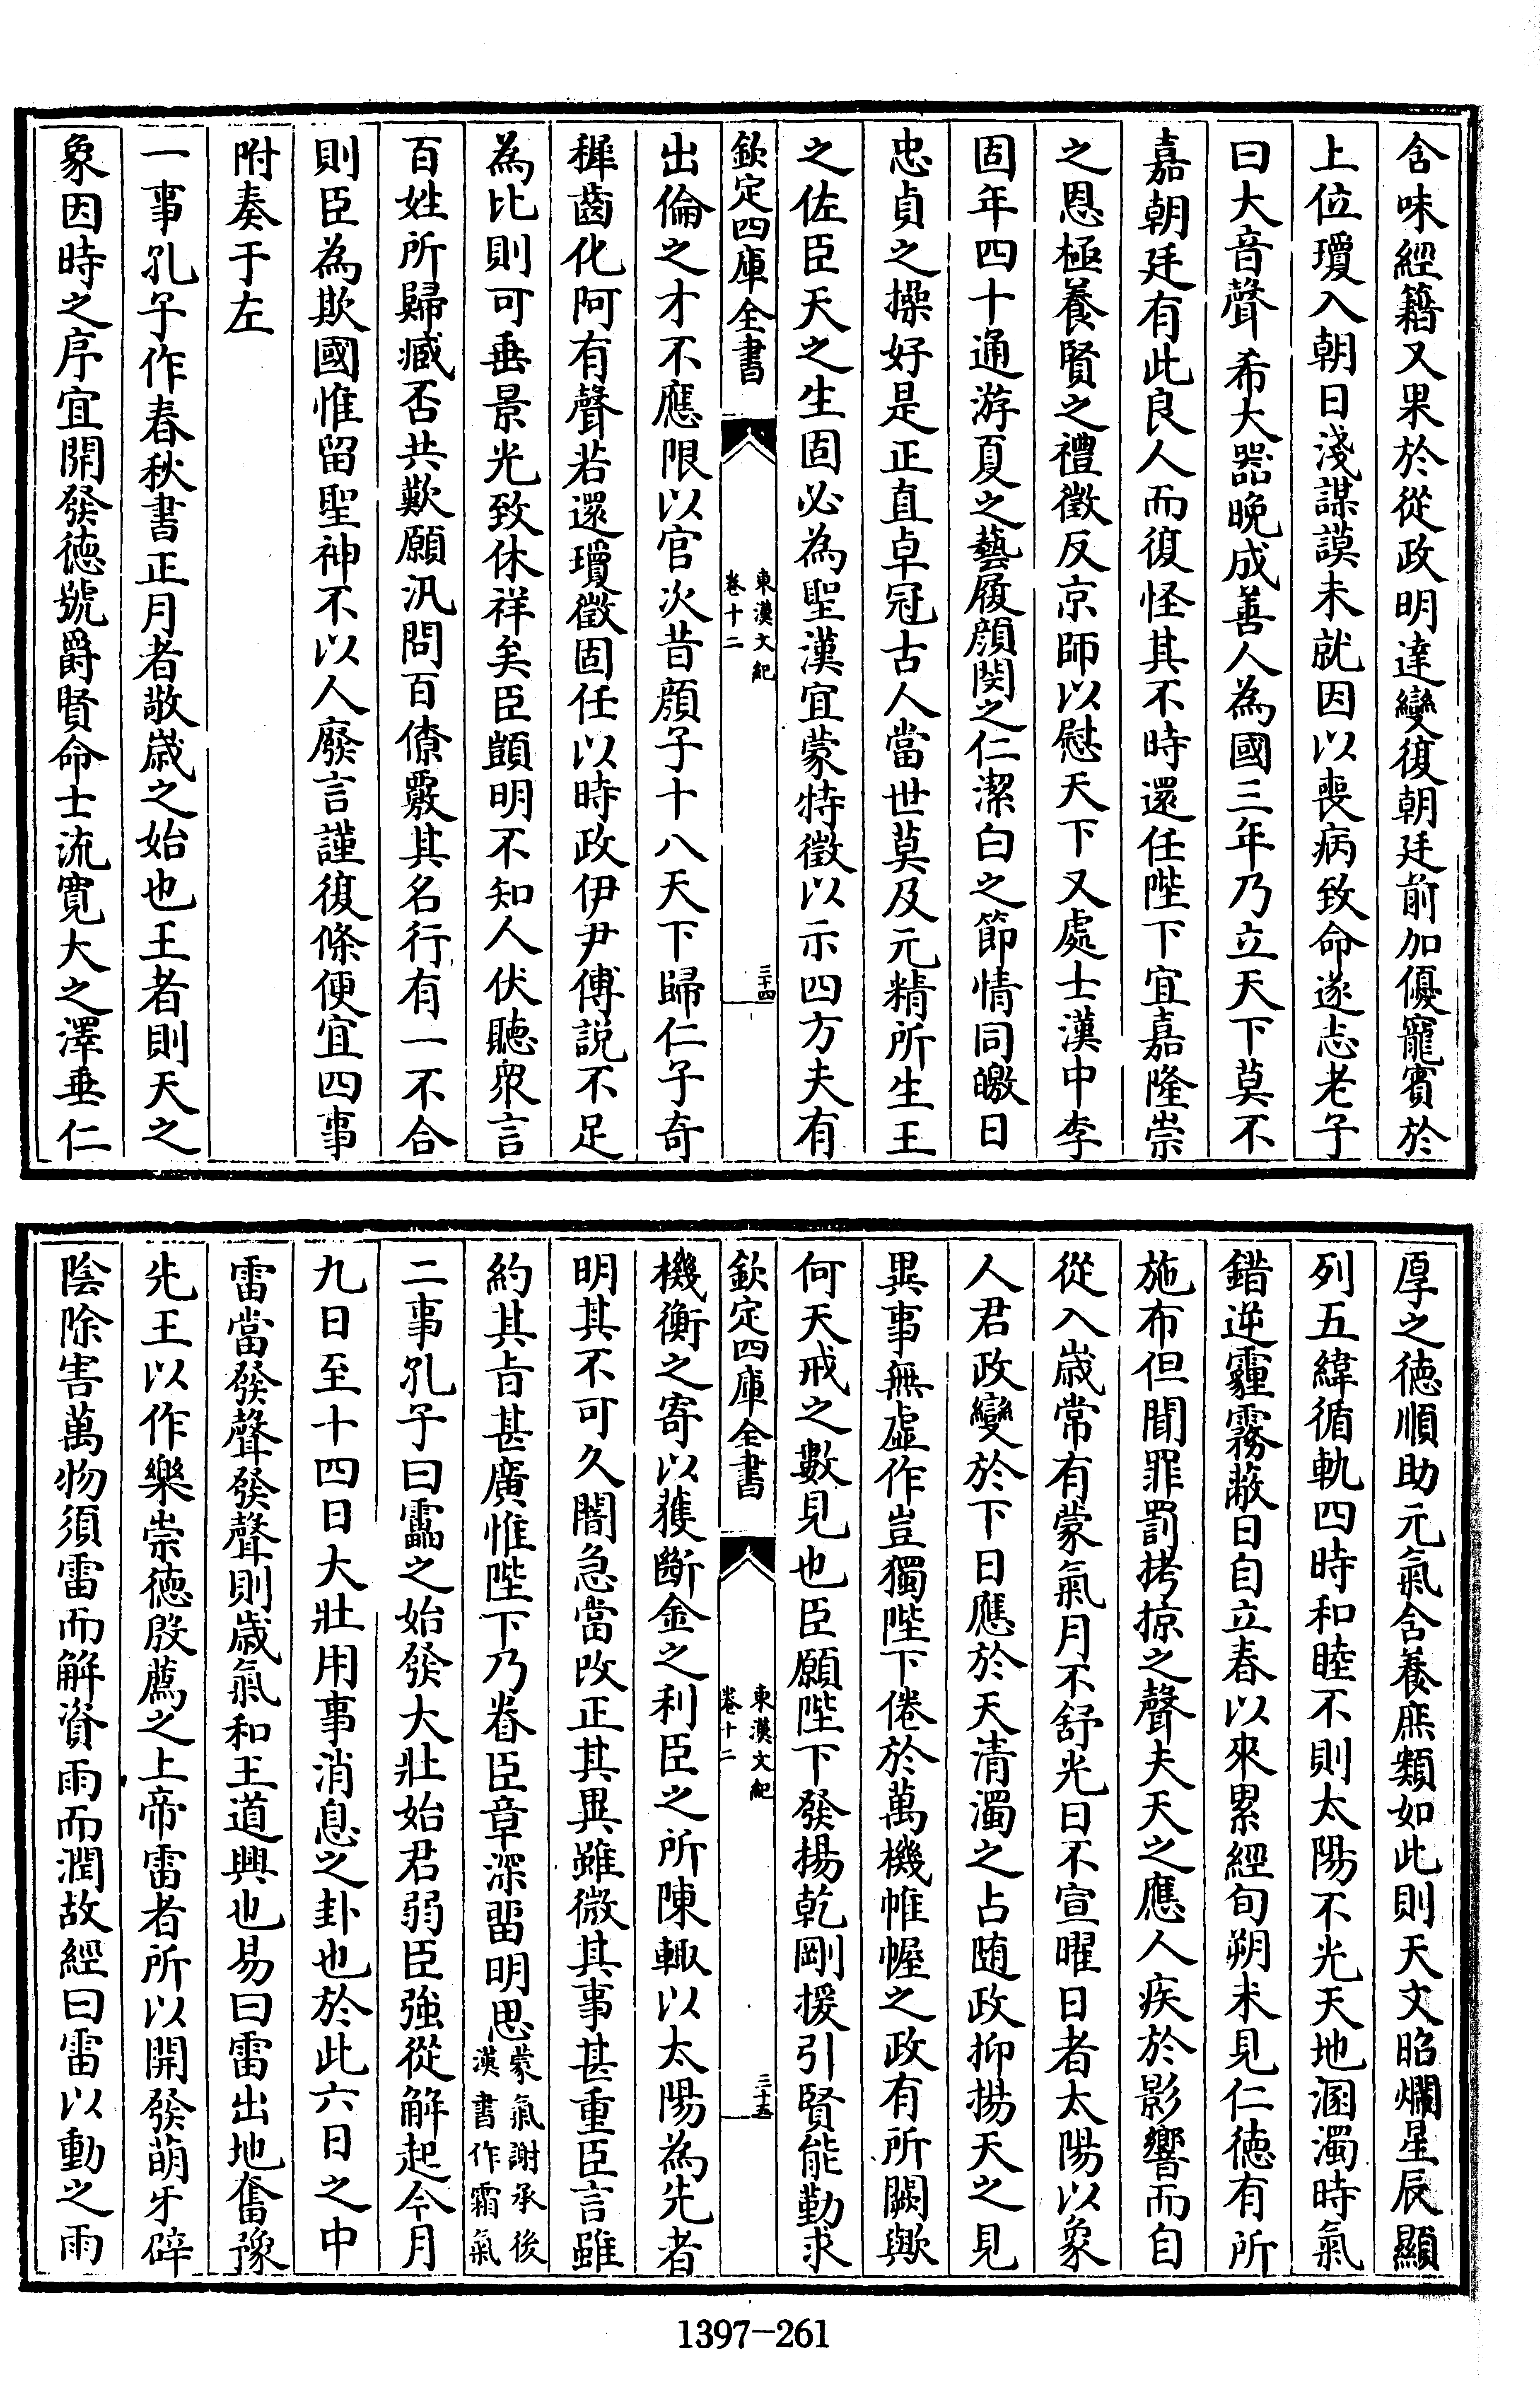 含味經籍又果於從政明達變復朝廷前加優寵賓於
上位瓊入朝日淺謀謨未就因以喪病致命遂志老子
曰大音聲希大器晚成善人為國三年乃立天下莫不
嘉朝廷有此良人而復怪其不時還任陛下宜嘉隆崇
之恩極養賢之禮徵反京師以慰天下又處士漢中李
固年四十通游夏之藝履顔閔之仁潔白之節情同皦日
忠貞之操好是正直卓冠古人當世莫及元精所生王
之佐臣天之生固必為聖漢宜蒙特徵以示四方夫有
欽定四庫全書
東漢文紀
卷十二
三十四
出倫之才不應限以官次昔顔子十八天下歸仁子奇
穉齒化阿有聲若還瓊徵固任以時政伊尹傅説不足
為比則可垂景光致休祥矣臣顗明不知人伏聽衆言
百姓所歸臧否共歎願汎問百僚覈其名行有一不合
則臣為欺國惟留聖神不以人廢言謹復條便宜四事
附奏于左
一事孔子作春秋書正月者敬歲之始也王者則天之
象因時之序宜開發德號爵賢命士流寛大之澤垂仁
厚之德順助元氣含養庶類如此則天文昭爛星辰顯
列五緯循軌四時和睦不則太陽不光天地溷濁時氣
錯逆霾霧蔽日自立春以來累經旬朔未見仁德有所
施布但聞罪罰拷掠之聲夫天之應人疾於影響而自
從入歲常有蒙氣月不舒光日不宣曜日者太陽以象
人君政變於下日應於天清濁之占随政抑揚天之見
異事無虛作豈獨陛下倦於萬機帷幄之政有所闕歟
何天戒之數見也臣願陛下發揚乾剛援引賢能勤求
欽定四庫全書
東漢文紀
卷十二
三十五
機衡之寄以獲斷金之利臣之所陳輙以太陽為先者
明其不可久闇急當改正其異雖微其事甚重臣言雖
約其㫖甚廣惟陛下乃眷臣章深留明思蒙氣謝承後
漢書作霜氣
二事孔子曰靁之始發大壯始君弱臣強從解起今月
九日至十四日大壯用事消息之卦也於此六日之中
雷當發聲發聲則歲氣和王道興也易曰雷出地奮豫
先王以作樂崇德殷薦之上帝雷者所以開發萌牙辟
陰除害萬物須雷而解資雨而潤故經曰雷以動之雨
1397-261